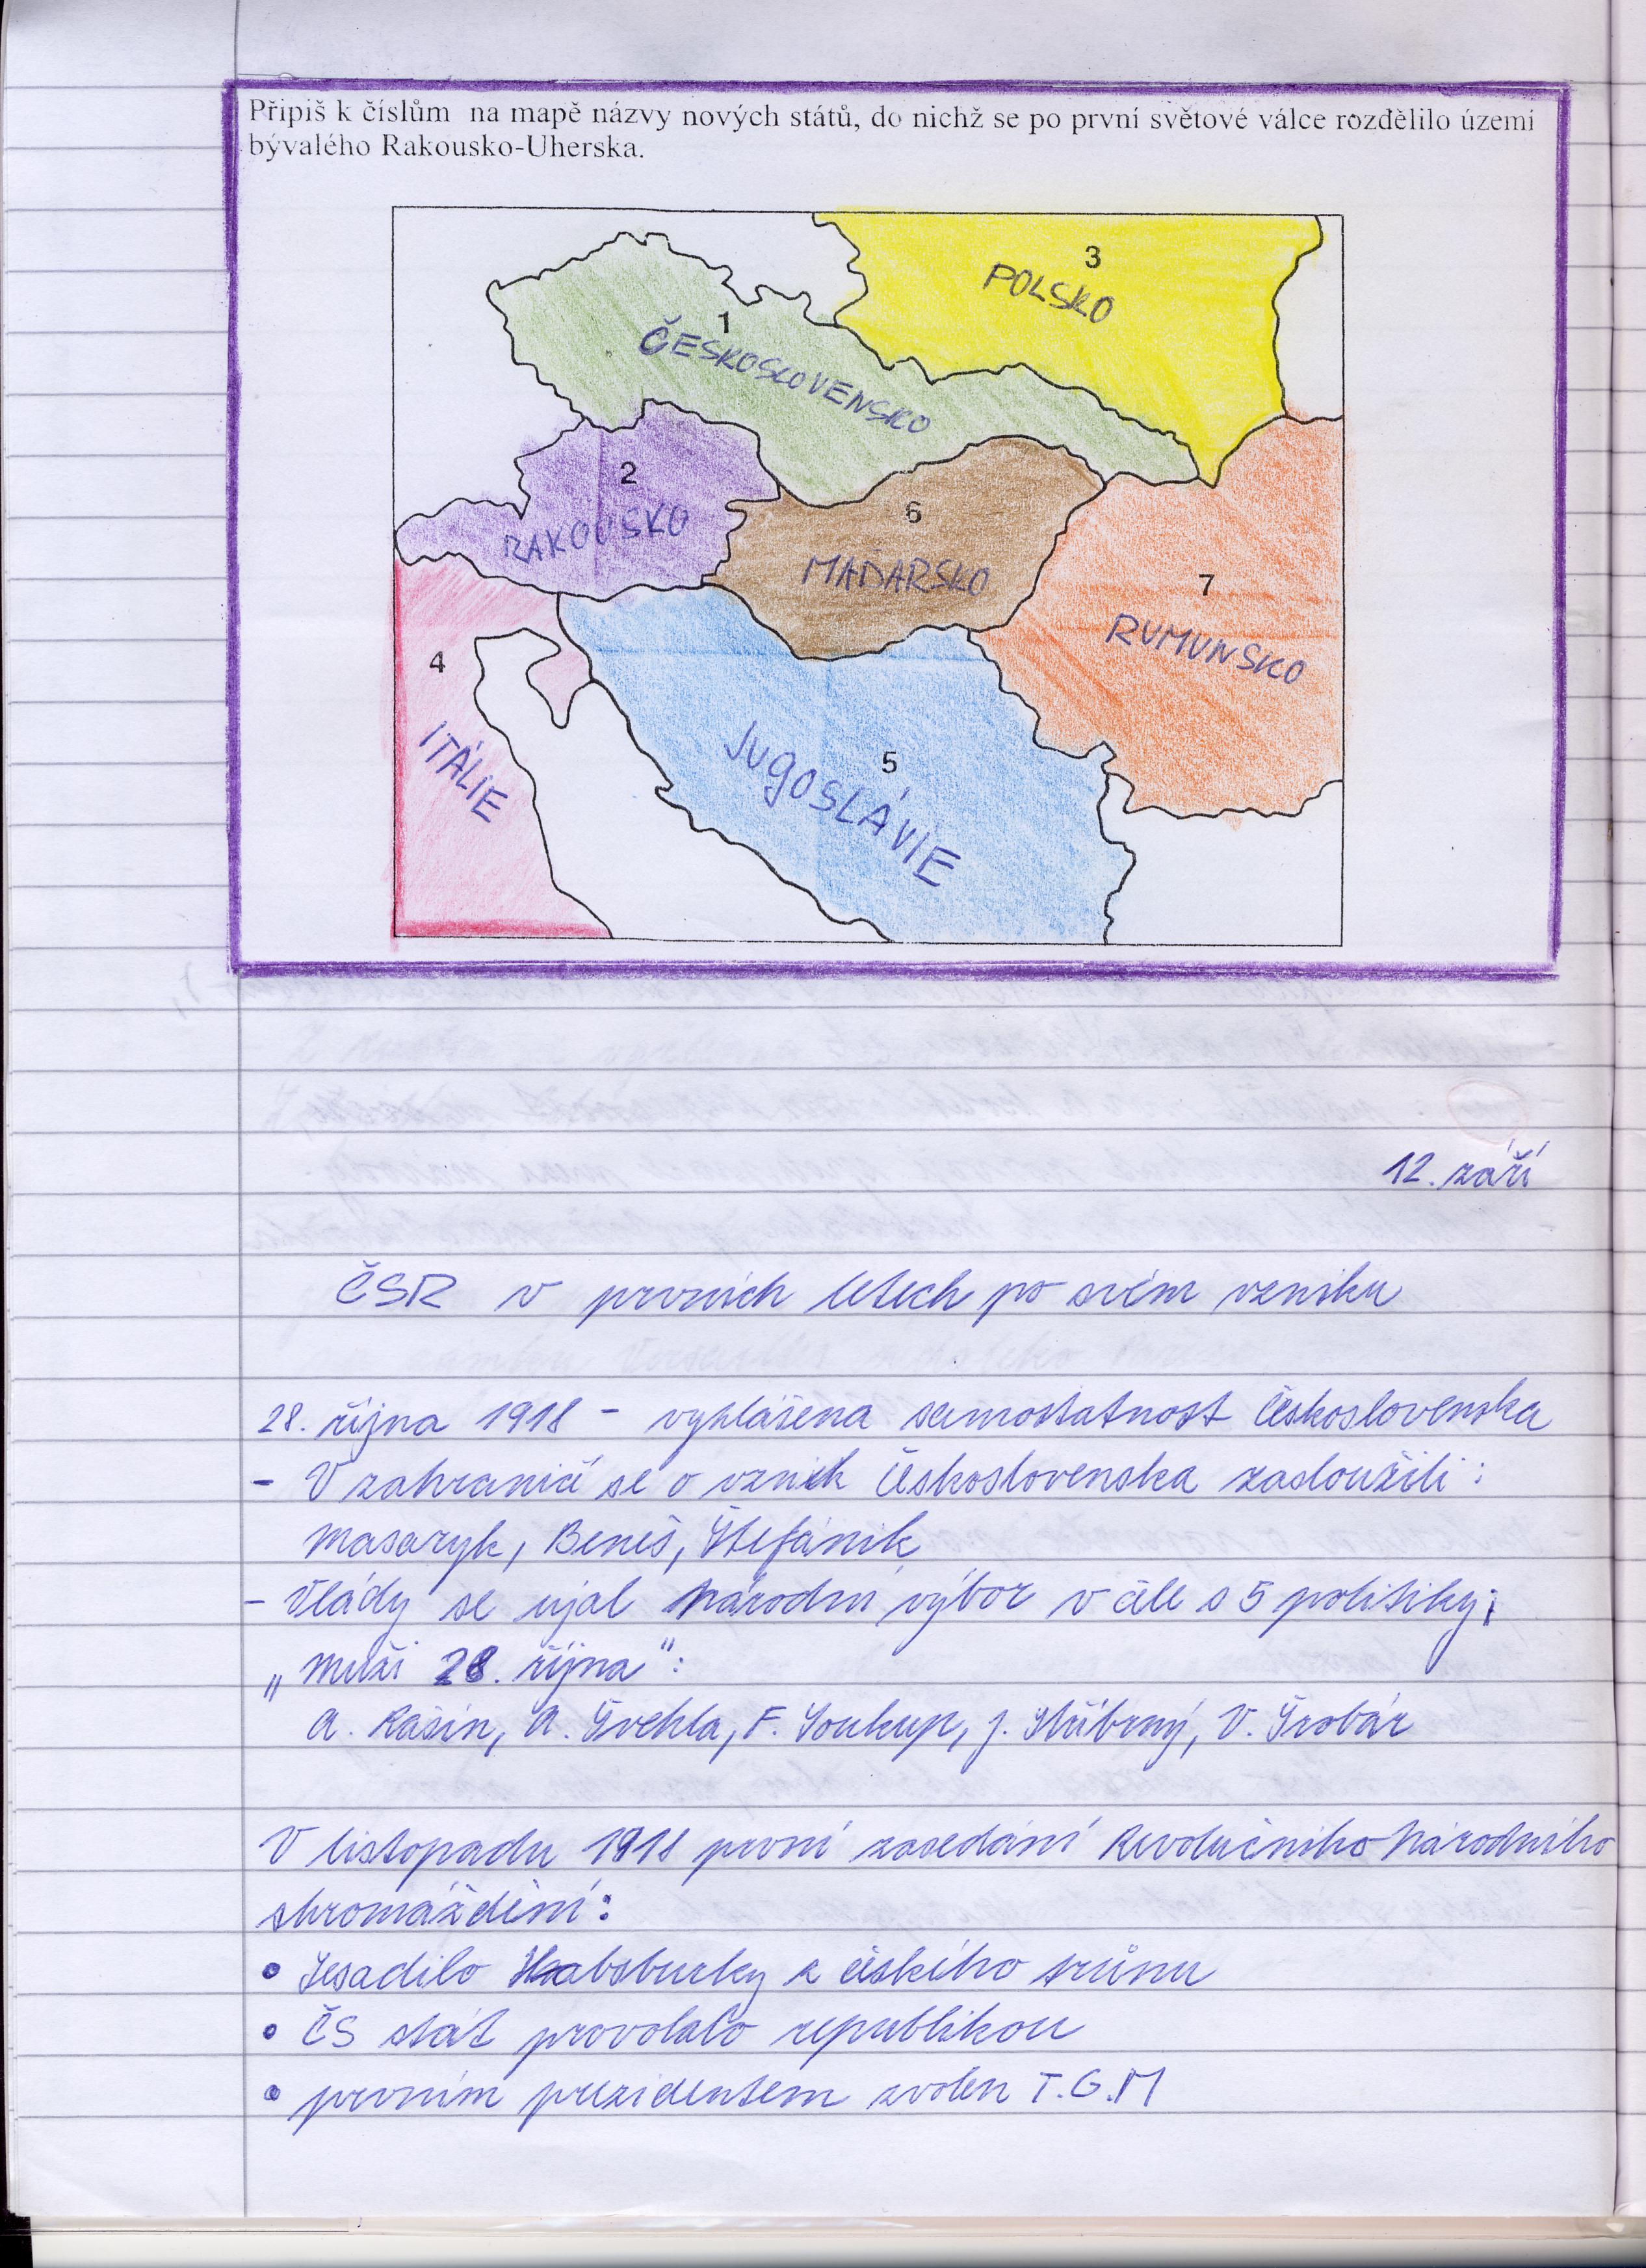 Připiš k číslům na mapě názvy nových států, do nichž se po první světové válce rozdělilo území
bývalého Rakousko-Uherska.
3
POLSKO
1
ČESKOSLOVENSKO
2
RAKOUSKO
6
MAĎARSKO
7
RUMUNSKO
4
ITÁLIE
5
JUGOSLÁVIE
12. září
ČSR v prvních letech po svém vzniku
28. října 1918 - vyhlášena samostatnost Československa
- V zahraničí se o vznik Československa zasloužili:
Masaryk, Beneš, Štefánik
- Vlády se ujal Národní výbor v čele s 5 politiky;
„Muži 28. října":
A. Rašín, A. Švehla, F. Soukup, J. Stříbrný, V. Šrobár
V listopadu 1918 první zasedání Revolučního Národního
shromáždění:
• Sesadilo Habsburky z českého trůnu
• ČS stát provolalo republikou
• prvním prezidentem zvolen T.G.M